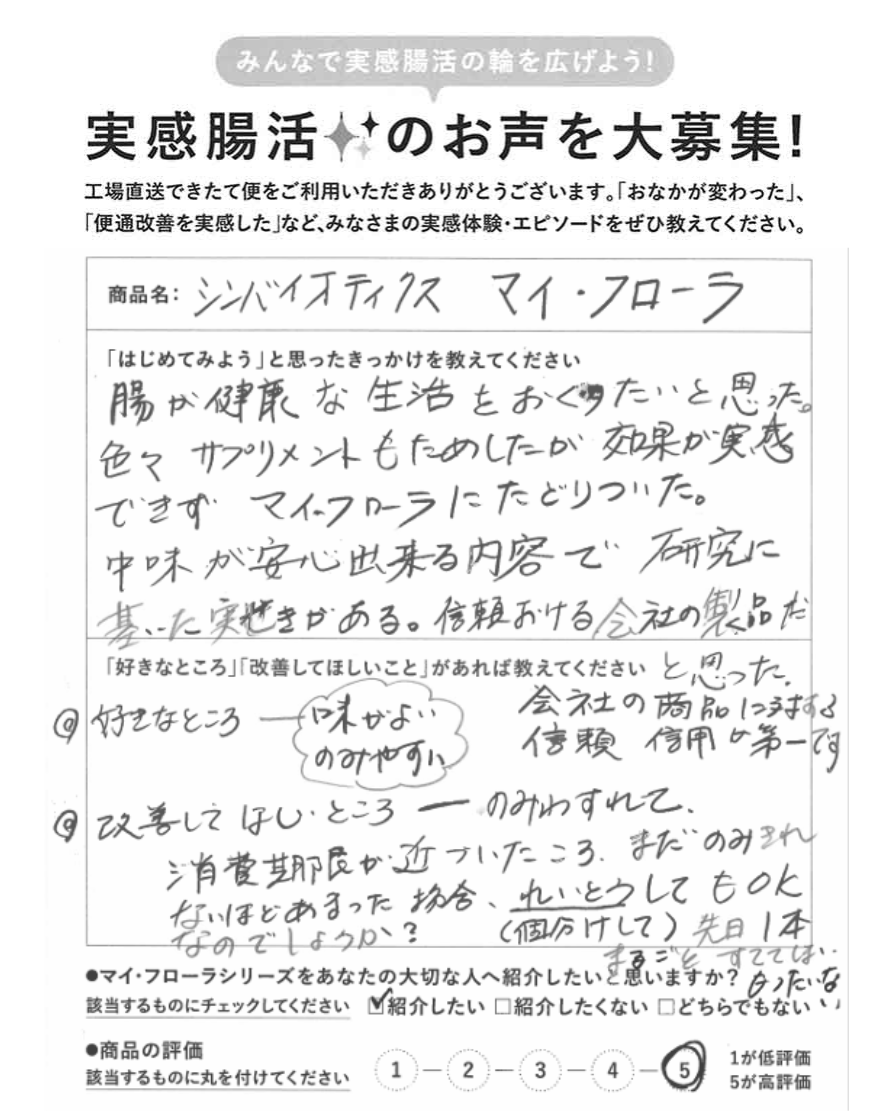 みんなで実感腸活の輪を広げよう!
実感腸活のお声を大募集!
工場直送できたて便をご利用いただきありがとうございます。「おなかが変わった」、
「便通改善を実感した」など、みなさまの実感体験・エピソードをぜひ教えてください。
商品名: シンバイオティクス マイ・フローラ
「はじめてみよう」と思ったきっかけを教えてください
腸が健康な生活をおくりたいと思った。
色々サプリメントもためしたが効果が実感
できず マイ・フローラにたどりついた。
中味が安心出来る内容で 研究に
基いた実せきがある。信頼おける会社の製品だ
と思った。
「好きなところ」「改善してほしいこと」があれば教えてください
◎好きなところ ― 味がよい
のみやすい
会社の商品に対する
信頼 信用が第一です
◎改善してほしいところ ― のみわすれて、
消費期限が近づいたころ、まだのみきれ
ないほどあまった場合、れいとうしてもOK
なのでしょうか?
(個分けして)先日1本
まるごとすててしまい
もったいない
●マイ・フローラシリーズをあなたの大切な人へ紹介したいと思いますか?
該当するものにチェックしてください ☑紹介したい □紹介したくない □どちらでもない
●商品の評価
該当するものに丸を付けてください
1 ― 2 ― 3 ― 4 ― 5
1が低評価
5が高評価